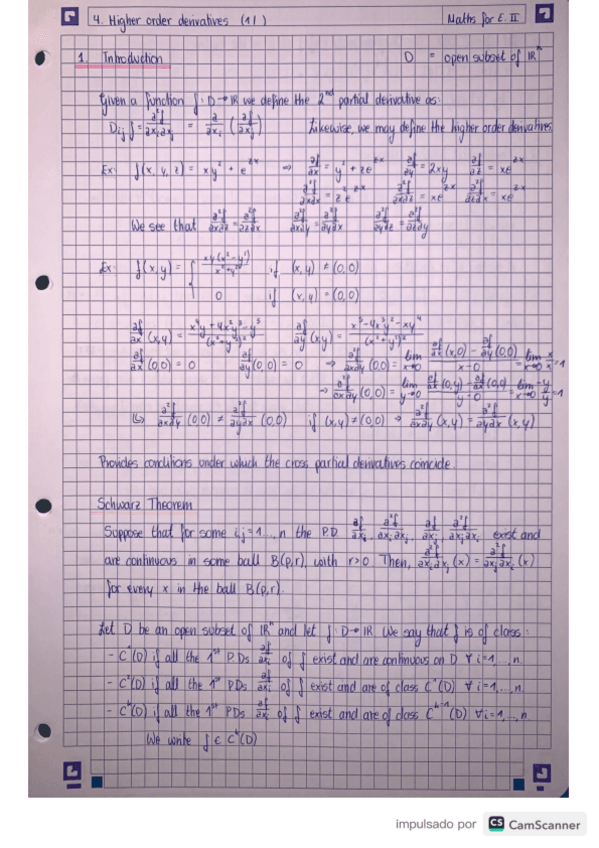 4. Higher order derivatives (1/)
Maths for E. II
1. Introduction
D = open subset of ℝⁿ
Given a function f: D→ℝ we define the 2nd partial derivative as:
Dij f = ∂²f/∂xi∂xj = ∂/∂xi (∂f/∂xj) Likewise, we may define the higher order derivatives
Ex: f(x, y, z) = xy² + e^zx ⇒ ∂f/∂x = y² + ze^zx ∂f/∂y = 2xy ∂f/∂z = xe^zx
We see that ∂²f/∂x∂z = ∂²f/∂z∂x ∂²f/∂x∂y = ∂²f/∂y∂x ∂²f/∂y∂z = ∂²f/∂z∂y
Ex: f(x,y) = { xy(x²-y²)/x²+y² if (x,y) ≠ (0,0)
0 if (x,y) = (0,0)
∂f/∂x (x,y) = x⁴y + 4x²y³ - y⁵/(x²+y²)² ∂f/∂y (x,y) = x⁵-4x³y²-xy⁴/(x²+y²)²
∂f/∂x (0,0) = 0 ∂f/∂y (0,0) = 0
↳ ∂²f/∂x∂y (0,0) ≠ ∂²f/∂y∂x (0,0) if (x,y)≠(0,0) → ∂²f/∂x∂y (x,y) = ∂²f/∂y∂x (x,y)
Provides conditions under which the cross partial derivatives coincide.
Schwarz Theorem
Suppose that for some i,j = 1...,n the P.D ∂f/∂xi, ∂²f/∂xi∂xj, ∂f/∂xj, ∂²f/∂xj∂xi exist and
are continuous in some ball B(p,r), with r>0. Then, ∂²f/∂xi∂xj (x) = ∂²f/∂xj∂xi (x)
for every x in the ball B(p,r).
Let D be an open subset of ℝⁿ and let f: D→ℝ We say that f is of class:
- C¹(D) if all the 1st P.Ds ∂f/∂xi of f exist and are continuous on D ∀i=1,...,n
- C²(D) if all the 1st PDs ∂f/∂xi of f exist and are of class C¹(D) ∀i=1,...,n
- Cᵏ(D) if all the 1st PDs ∂f/∂xi of f exist and are of class Cᵏ⁻¹(D) ∀i=1,...,n
We write f ∈ Cᵏ(D)
impulsado por CS CamScanner